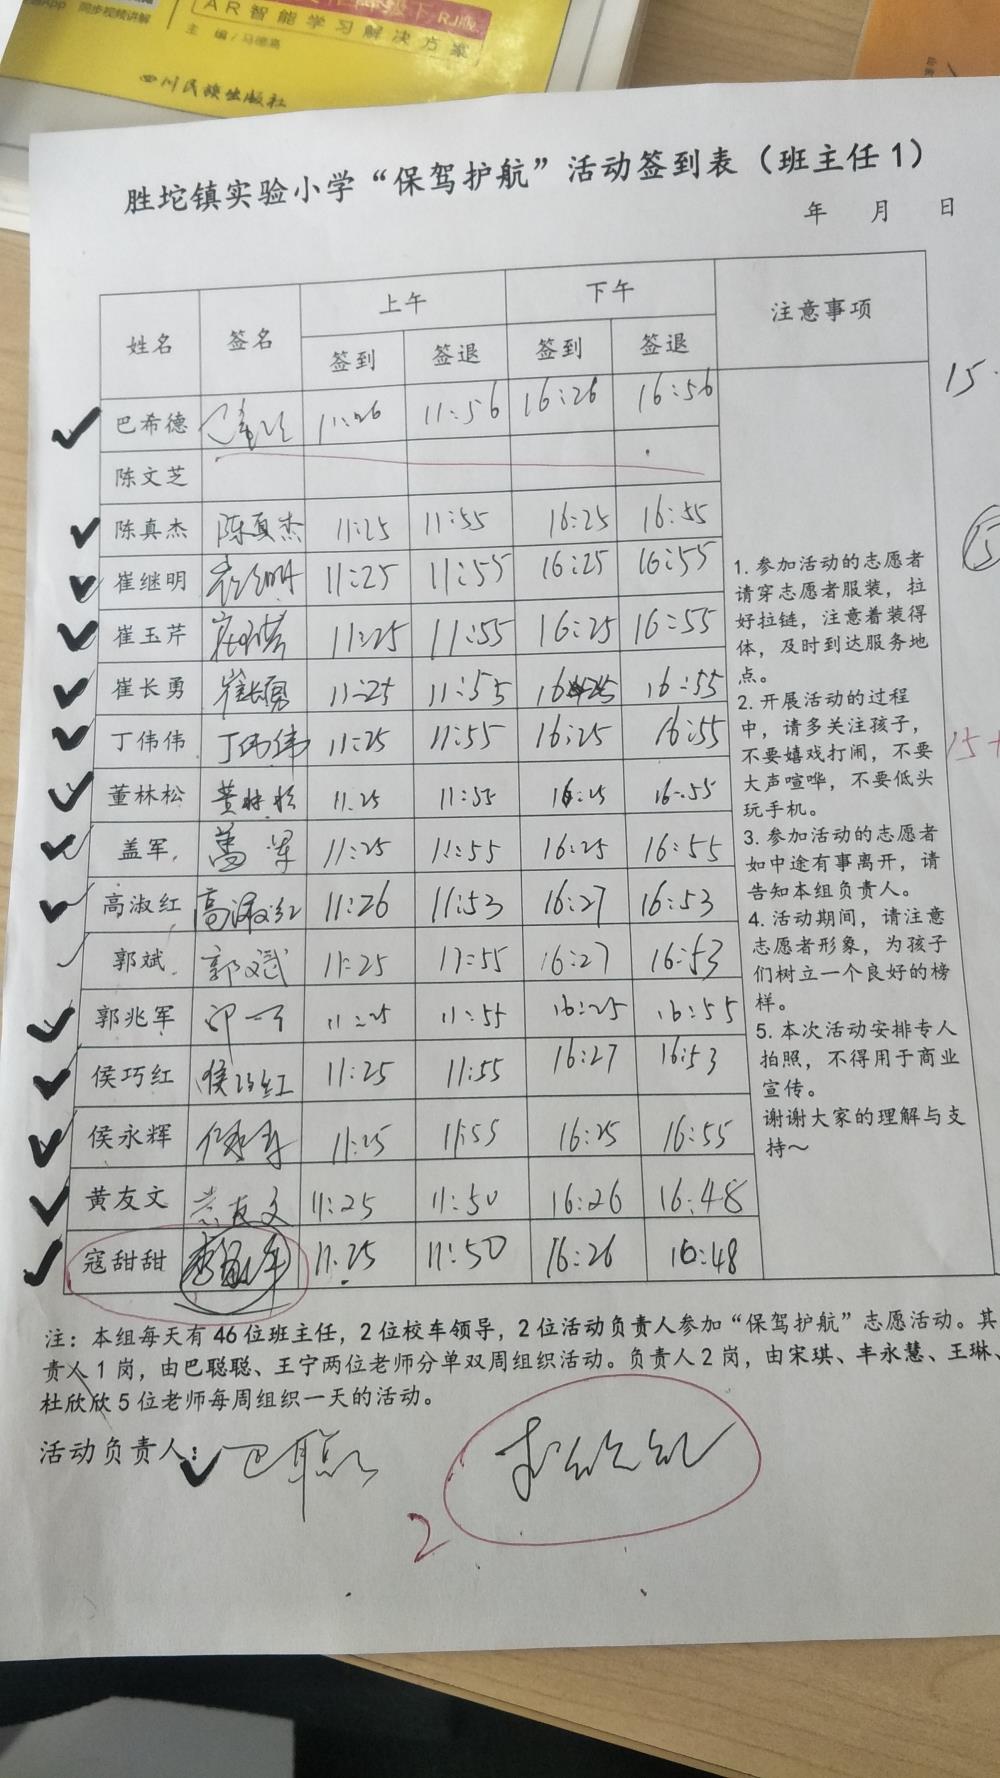 App 同步视频讲解
RJ版
AR智能学习解决方案
主 编/马德高
四川民族出版社
胜坨镇实验小学“保驾护航”活动签到表（班主任1）
年 月 日
姓名 签名 上午 下午 注意事项
签到 签退 签到 签退
巴希德 11:26 11:56 16:26 16:56
陈文芝
陈真杰 陈真杰 11:25 11:55 16:25 16:55
崔继明 11:25 11:55 16:25 16:55
崔玉芹 11:25 11:55 16:25 16:55
崔长勇 崔长勇 11:25 11:55 16:25 16:55
丁伟伟 丁伟伟 11:25 11:55 16:25 16:55
董林松 董林松 11:25 11:55 16:25 16:55
盖军 盖军 11:25 11:55 16:25 16:55
高淑红 高淑红 11:26 11:53 16:27 16:53
郭斌 郭斌 11:25 11:55 16:27 16:53
郭兆军 11:25 11:55 16:25 16:55
侯巧红 侯巧红 11:25 11:55 16:27 16:53
侯永辉 11:25 11:55 16:25 16:55
黄友文 黄友文 11:25 11:50 16:26 16:48
寇甜甜 11:25 11:50 16:26 16:48
1. 参加活动的志愿者
请穿志愿者服装，拉
好拉链，注意着装得
体，及时到达服务地
点。
2. 开展活动的过程
中，请多关注孩子，
不要嬉戏打闹，不要
大声喧哗，不要低头
玩手机。
3. 参加活动的志愿者
如中途有事离开，请
告知本组负责人。
4. 活动期间，请注意
志愿者形象，为孩子
们树立一个良好的榜
样。
5. 本次活动安排专人
拍照，不得用于商业
宣传。
谢谢大家的理解与支
持～
15
15+
注：本组每天有46位班主任，2位校车领导，2位活动负责人参加“保驾护航”志愿活动。其
责人1岗，由巴聪聪、王宁两位老师分单双周组织活动。负责人2岗，由宋琪、丰永慧、王琳、
杜欣欣5位老师每周组织一天的活动。
活动负责人：
2